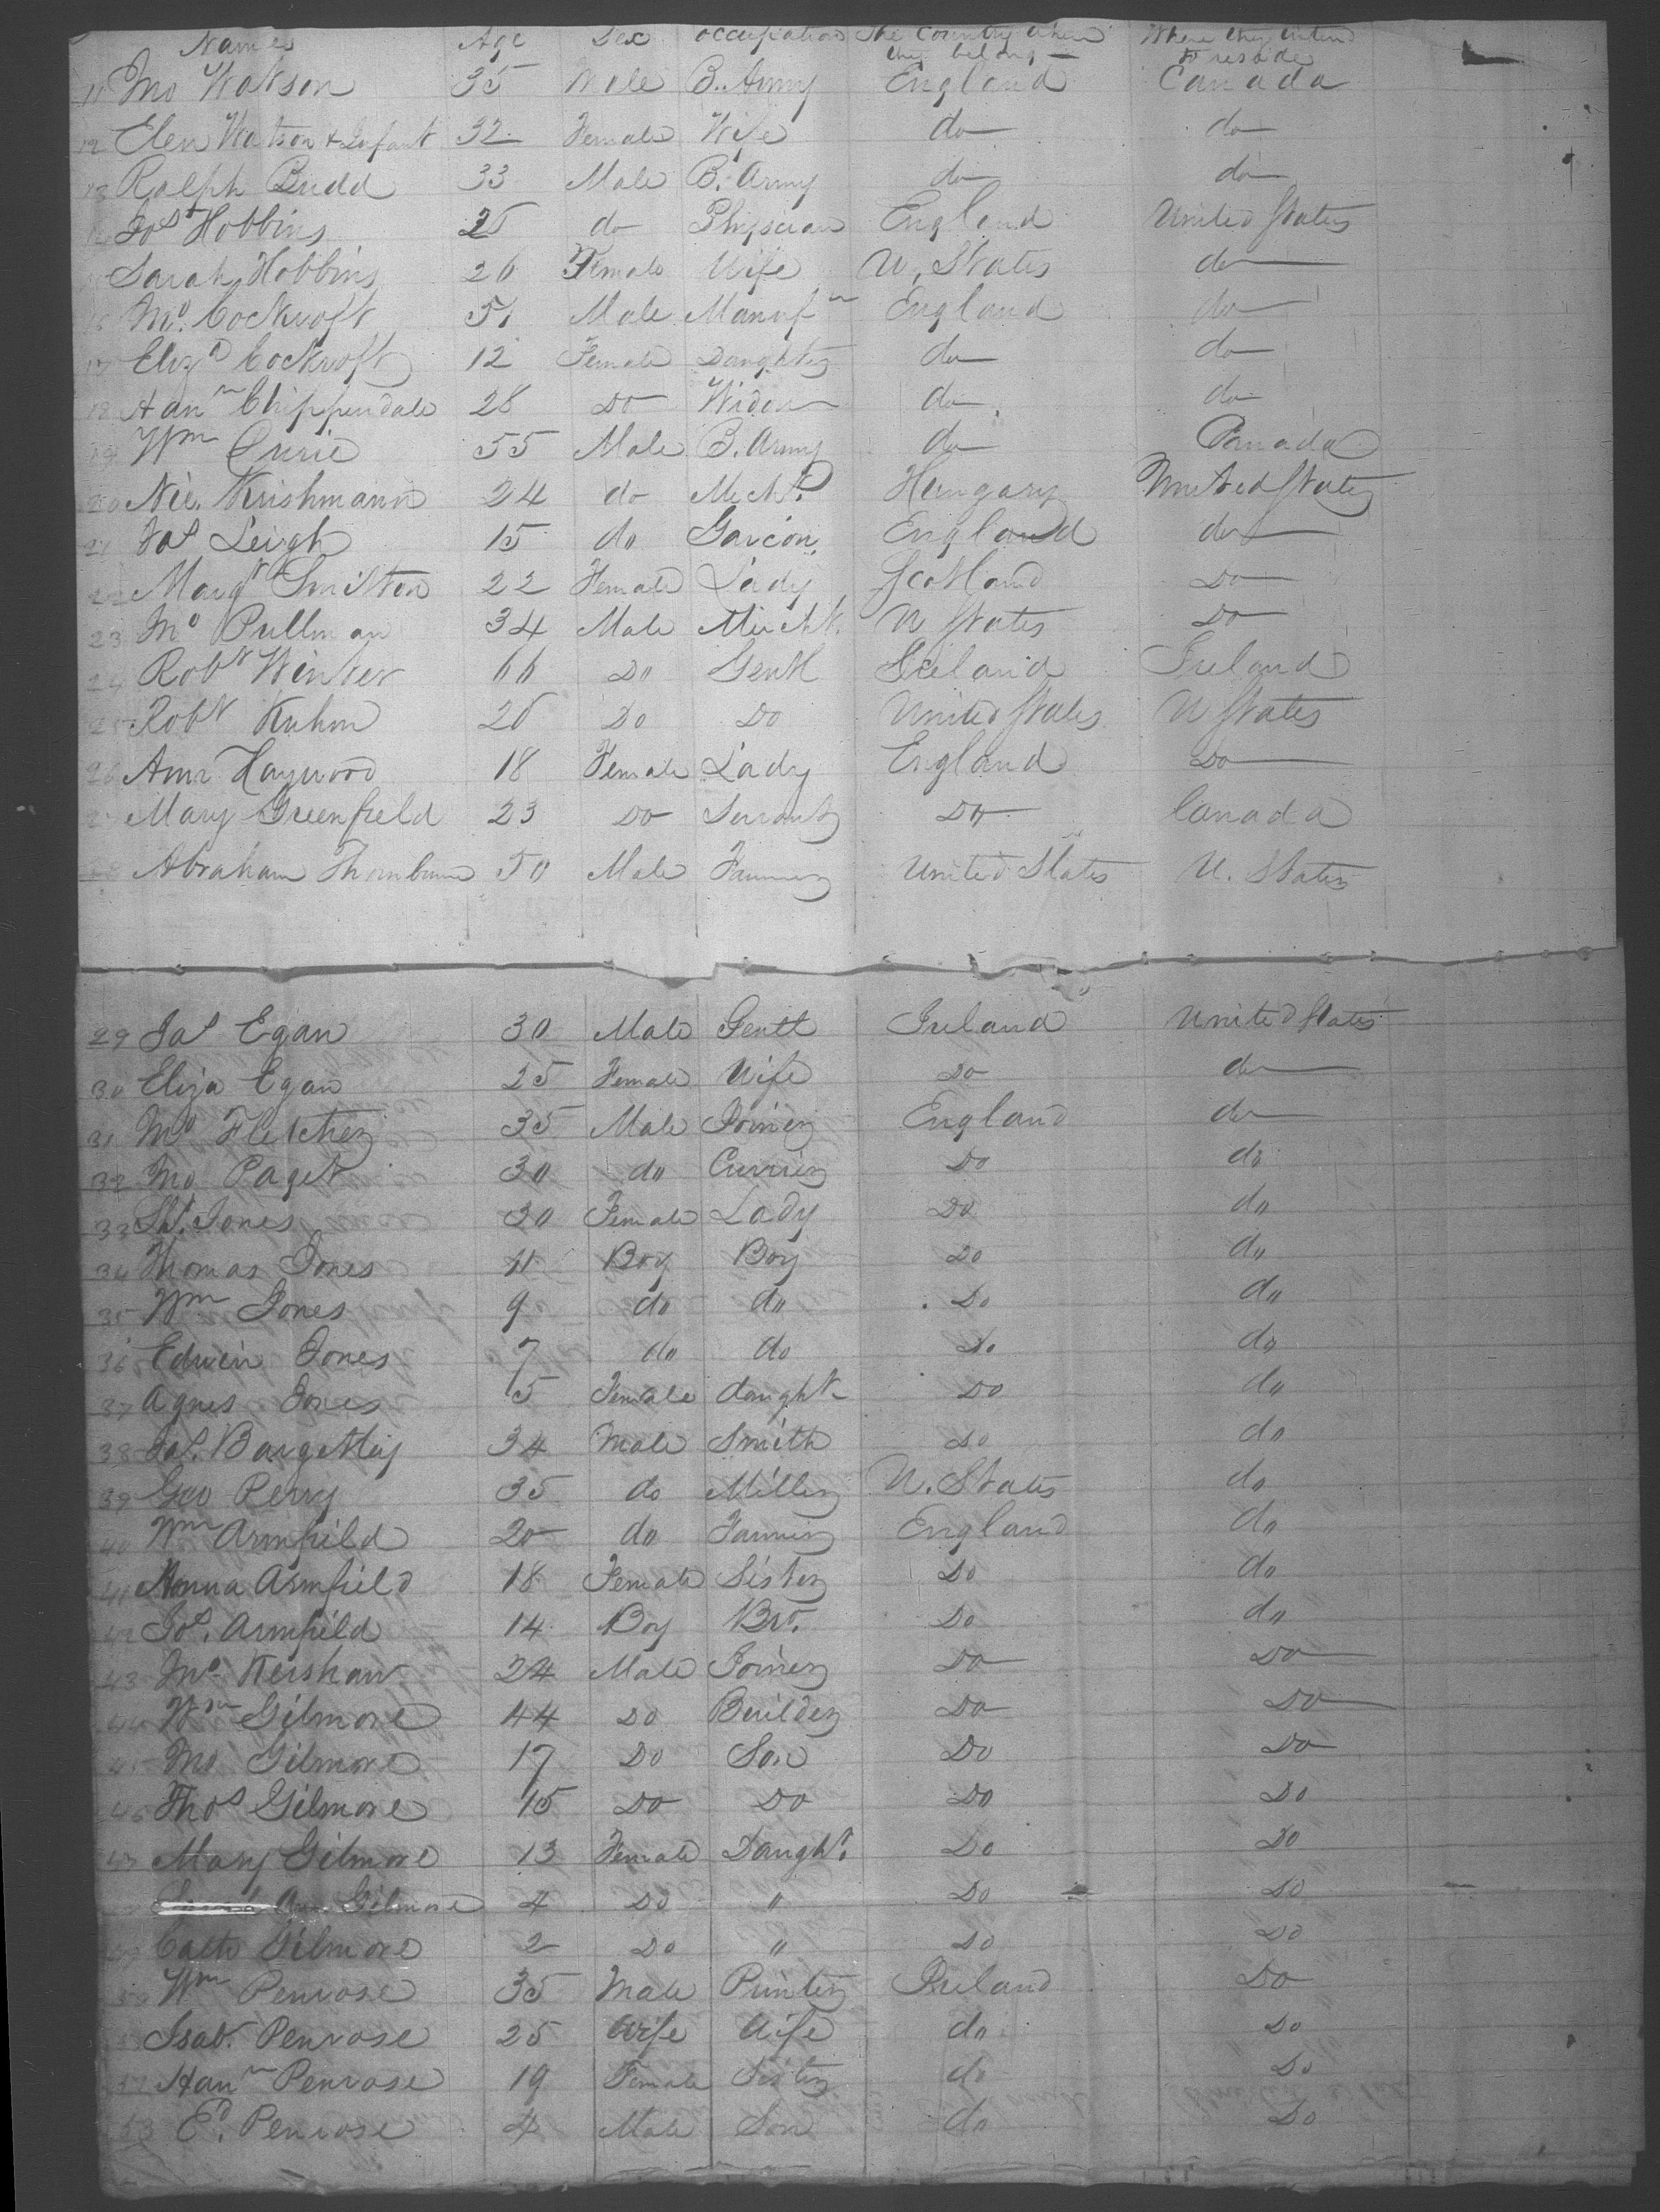 Names Age Sex occupation The Country where they belong Where they intend to reside
11 Jno Watson 35 Male B. Army England Canada
12 Elen Watson & Infant 32 Female Wife do do
13 Ralph Budd 33 Male B. Army do do
Jos Hobbins 26 do Physician England United States
Sarah Hobbins 26 Female Wife U. States do
16 Jno. Cockroft 51 Male Manufr England do
17 Eliza Cockroft 12 Female Daughter do do
18 Hann Chippendale 28 Do Widow do do
19 Wm Curie 55 Male B. Army do Canada
20 Nie. Krishmann 24 do Mecht. Hungary United States
21 Jas Leigh 15 do Garcon England do
22 Margt Smilton 22 Female Lady Scotland Do
23 Jno Pullman 34 Male Mercht. U States Do
24 Robt Winter 66 Do Gentl Ireland Ireland
25 Robt Kuhn 26 Do Do United States U States
26 Ann Haywood 18 Female Lady England Do
27 Mary Greenfield 23 Do Servant Do Canada
28 Abraham Thornburn 50 Male Farmer United States U. States
29 Jas Egan 30 Male Gentl Ireland United States
30 Eliza Egan 25 Female Wife Do do
31 Jno Fletcher 35 Male Joiner England do
32 Jno Paget 30 do Currier Do do
33 Jones 30 Female Lady Do do
34 Thomas Jones 11 Boy Boy Do do
35 Wm Jones 9 do do Do do
36 Edwin Jones 7 do do Do do
37 Agnes Jones 5 Female daught Do do
38 Jas. 34 Male Smith Do do
39 Geo Perry 35 do Miller U. States do
40 Wm Armfield 20 do Farmer England do
41 Hanna Armfield 18 Female Sister Do do
42 Jos. Armfield 14 Boy Bro. Do do
43 Jno Kershaw 24 Male Joiner Do Do
44 Wm Gilmore 44 Do Builder Do Do
45 Jno Gilmore 17 Do Son Do Do
46 Thos Gilmore 15 Do Do Do Do
47 Mary Gilmore 13 Female Daught. Do Do
Ann Gilmore 4 Do " Do Do
49 Cath Gilmore 2 Do " Do Do
50 Wm Penrose 35 Male Printer Ireland Do
Isab. Penrose 25 Wife Wife do Do
Hann Penrose 19 Female Sister do Do
53 Ed. Penrose 4 Male Son do Do